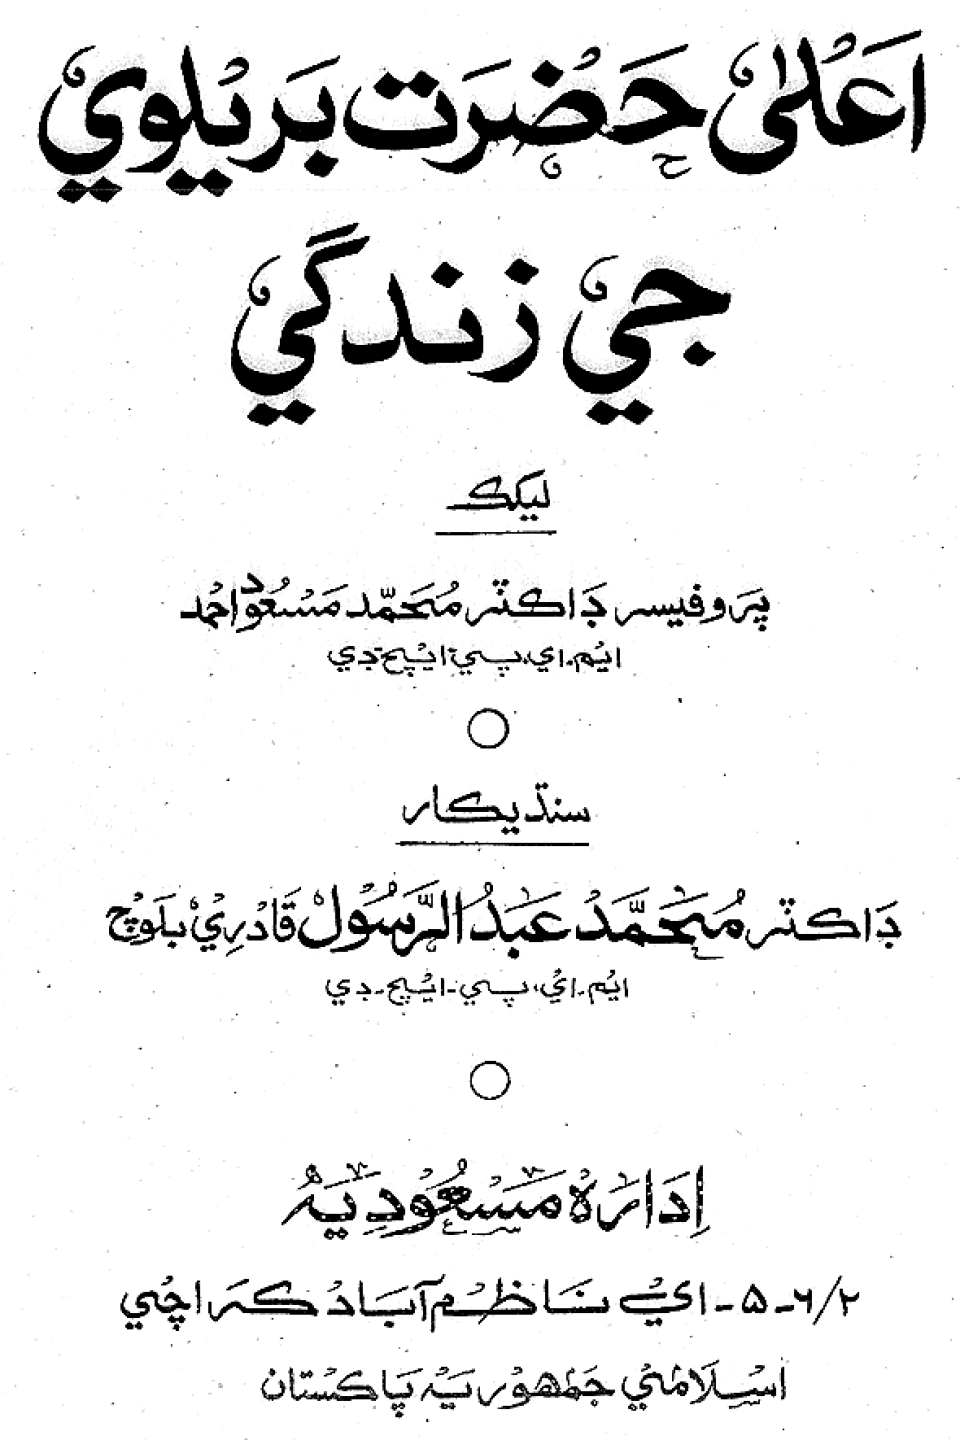 اَعْلیٰ حَضْرَت بَريْلوي
جي زندگي
ليکڪ
پَروفيسر ڊاڪٽر مُحَمّد مَسْعُود احْمد
ايْم.اي، پي ايْڇ ڊي
سنڌيڪار
ڊاڪٽر مُحَمَّدْ عَبْدُ الرَّسُوْل قَادْرِيْ بلَوْچ
ايْم.اي، پي-ايْڇ-ڊي
اِدَارَهْ مَسْعُوْدِيَهْ
۶/۲-۵-اي نَاظْم آبَادْ ڪَراچِي
اسْلَامْيْ جَمْهُوْريَه پَاڪسْتان